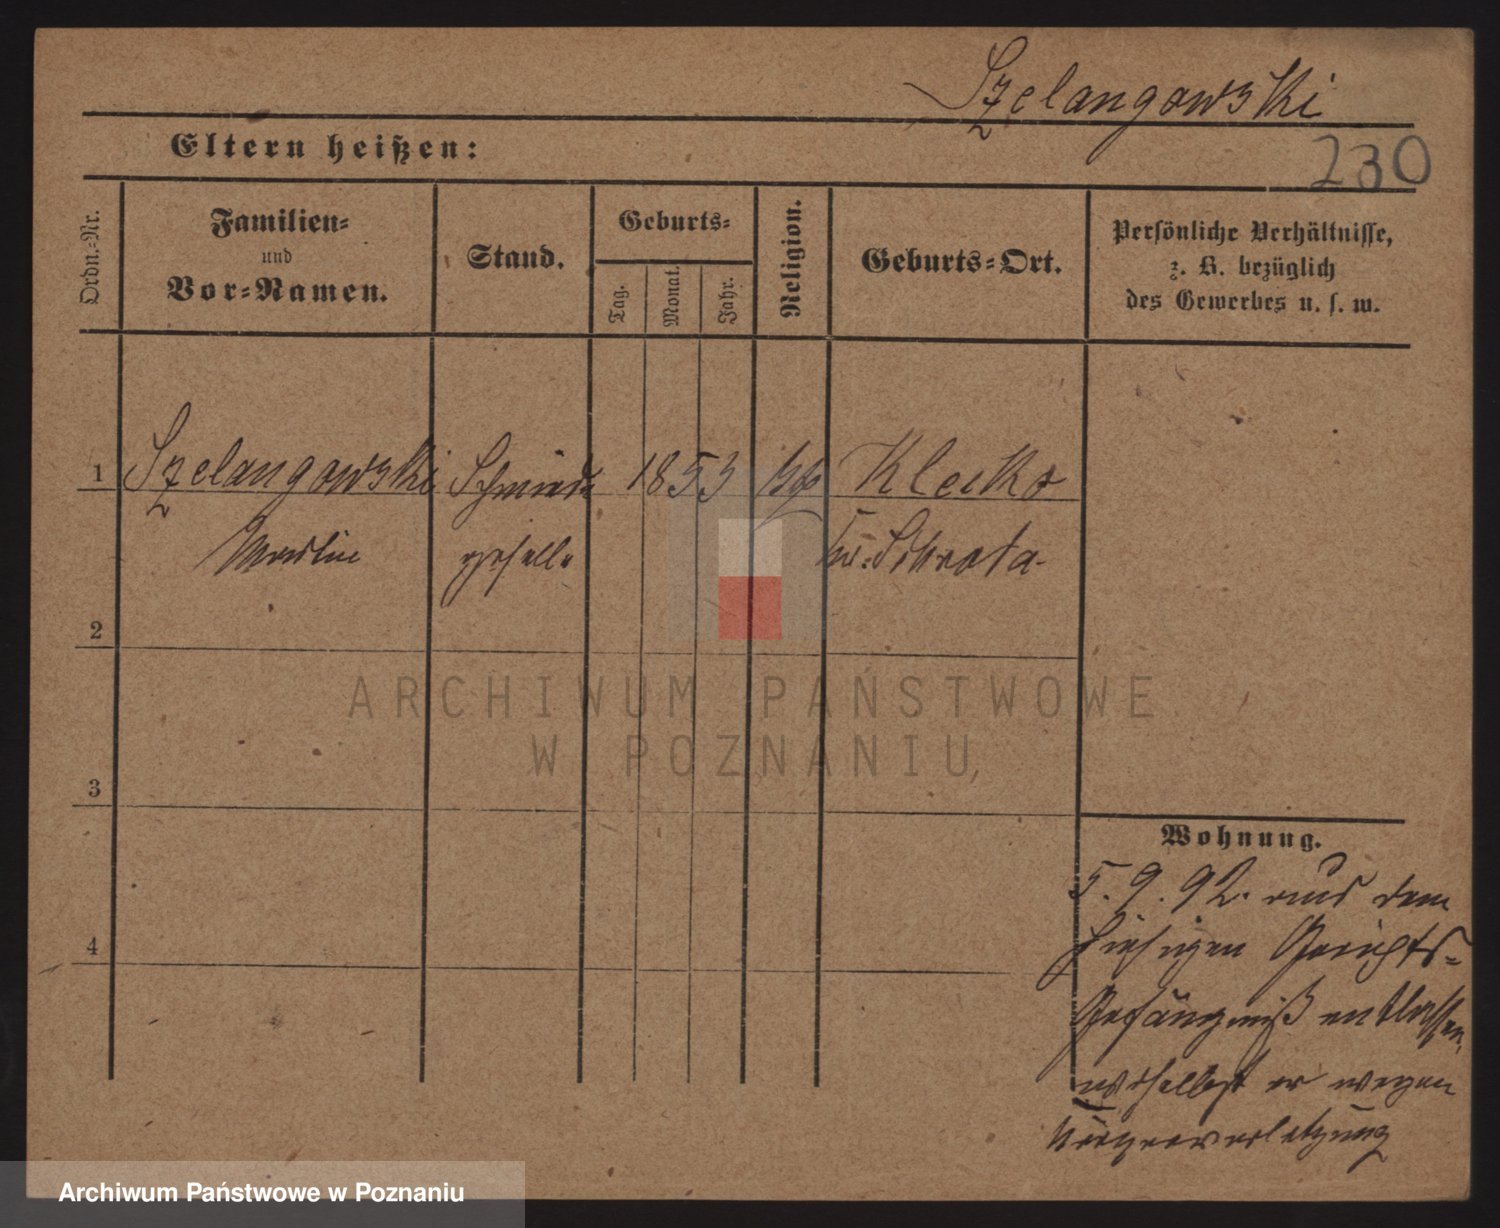 Szelangowski
Eltern heißen:
230
Ordn.-Nr.
Familien-
und
Vor-Namen.
Stand.
Geburts-
Tag.
Monat.
Jahr.
Religion.
Geburts-Ort.
Persönliche Verhältnisse,
z. B. bezüglich
des Gewerbes u. s. w.
1 Szelangowski Schmiede 1853 Klecko
geselle
2
3
4
ARCHIWUM PAŃSTWOWE
W POZNANIU
Wohnung.
5.9.92. aus dem
hiesigen Gerichts-
Gefängniß entlassen,
woselbst er wegen
Körperverletzung
Archiwum Państwowe w Poznaniu